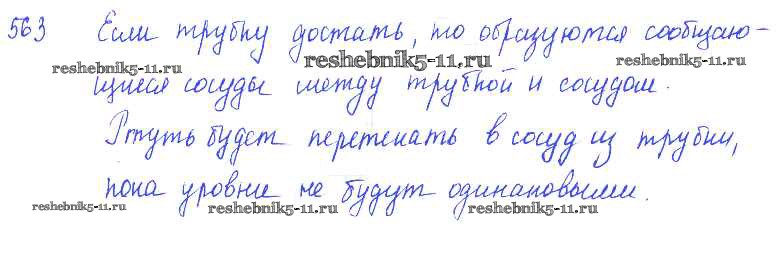 563 Если трубку достать, то образуются сообщаю-
reshebnik5-11.ru reshebnik5-11.ru reshebnik5-11.ru
щиеся сосуды между трубкой и сосудом.
Ртуть будет перетекать в сосуд из трубки,
пока уровни не будут одинаковыми.
reshebnik5-11.ru reshebnik5-11.ru reshebnik5-11.ru